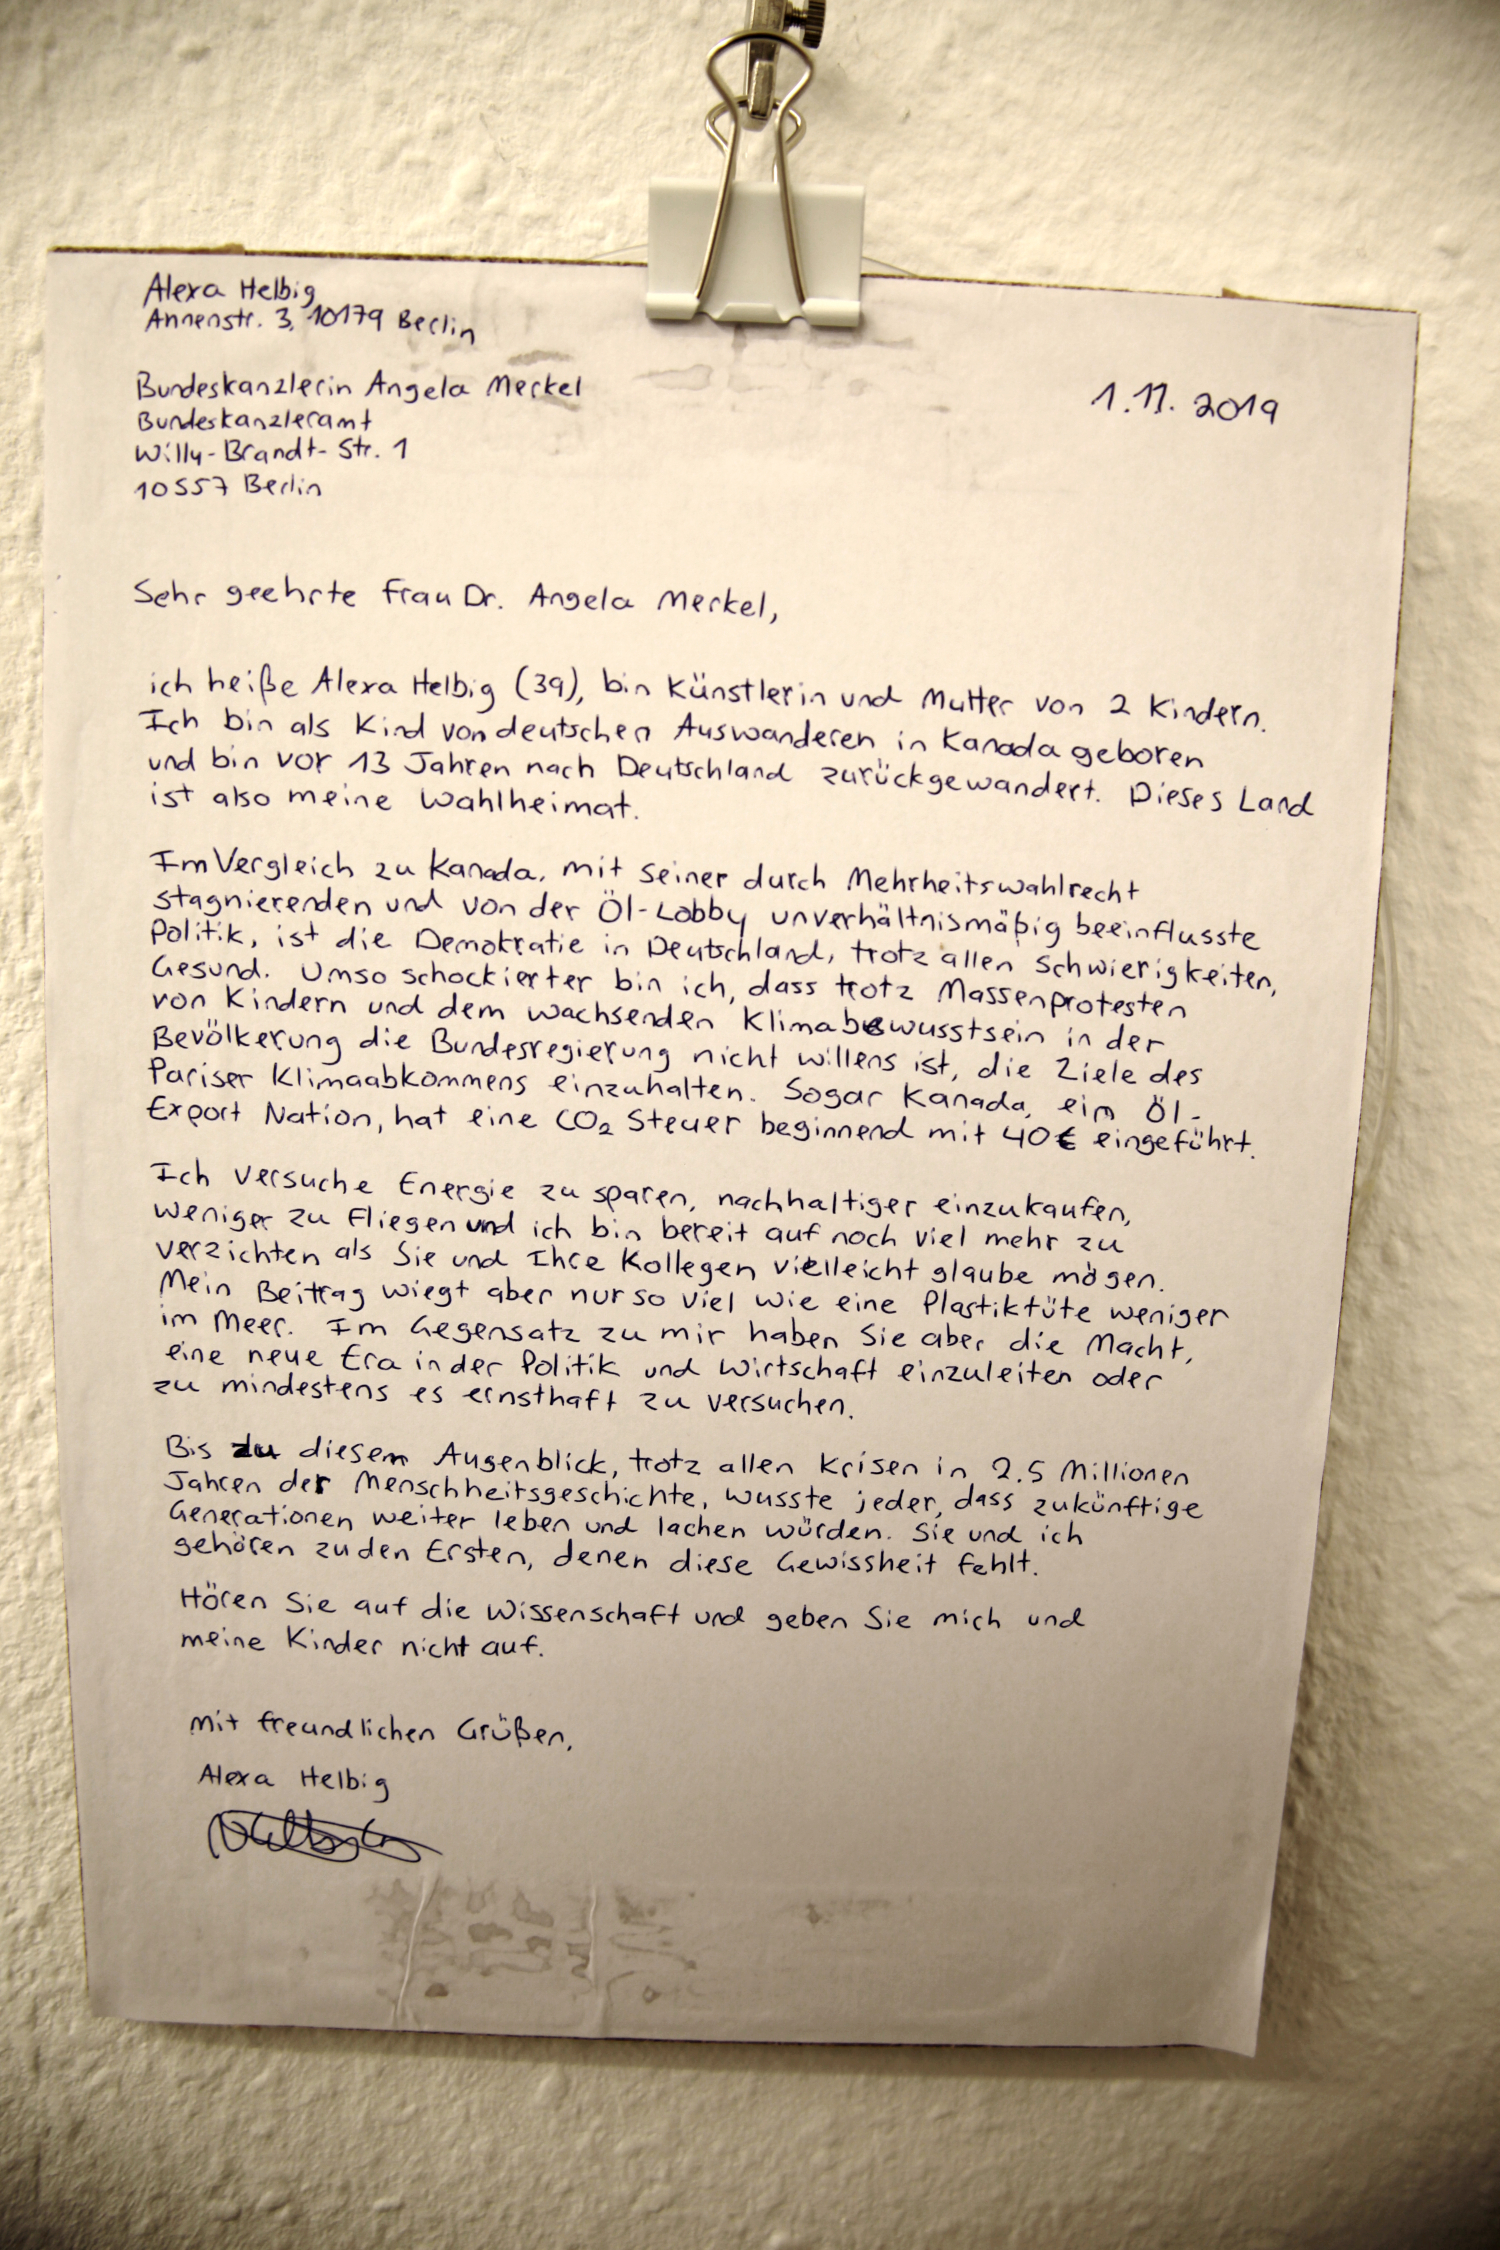 Alexa Helbig
Annenstr. 3, 10179 Berlin
Bundeskanzlerin Angela Merkel
Bundeskanzleramt
Willy-Brandt-Str. 1
10557 Berlin
1.11.2019
Sehr geehrte Frau Dr. Angela Merkel,
ich heiße Alexa Helbig (39), bin Künstlerin und Mutter von 2 Kindern.
Ich bin als Kind von deutschen Auswanderen in Kanada geboren
und bin vor 13 Jahren nach Deutschland zurückgewandert. Dieses Land
ist also meine Wahlheimat.
Im Vergleich zu Kanada, mit seiner durch Mehrheitswahlrecht
stagnierenden und von der Öl-Lobby unverhältnismäßig beeinflusste
Politik, ist die Demokratie in Deutschland, trotz allen Schwierigkeiten,
Gesund. Umso schockierter bin ich, dass trotz Massenprotesten
von Kindern und dem wachsenden Klimabewusstsein in der
Bevölkerung die Bundesregierung nicht willens ist, die Ziele des
Pariser Klimaabkommens einzuhalten. Sogar Kanada, ein Öl-
Export Nation, hat eine CO₂ Steuer beginnend mit 40€ eingeführt.
Ich versuche Energie zu sparen, nachhaltiger einzukaufen,
weniger zu Fliegen und ich bin bereit auf noch viel mehr zu
verzichten als Sie und Ihre Kollegen vielleicht glaube mögen.
Mein Beitrag wiegt aber nur so viel wie eine Plastiktüte weniger
im Meer. Im Gegensatz zu mir haben Sie aber die Macht,
eine neue Era in der Politik und Wirtschaft einzuleiten oder
zu mindestens es ernsthaft zu versuchen.
Bis zu diesem Augenblick, trotz allen Krisen in 2.5 Millionen
Jahren der Menschheitsgeschichte, wusste jeder, dass zukünftige
Generationen weiter leben und lachen würden. Sie und ich
gehören zu den Ersten, denen diese Gewissheit fehlt.
Hören Sie auf die Wissenschaft und geben Sie mich und
meine Kinder nicht auf.
mit freundlichen Grüßen,
Alexa Helbig